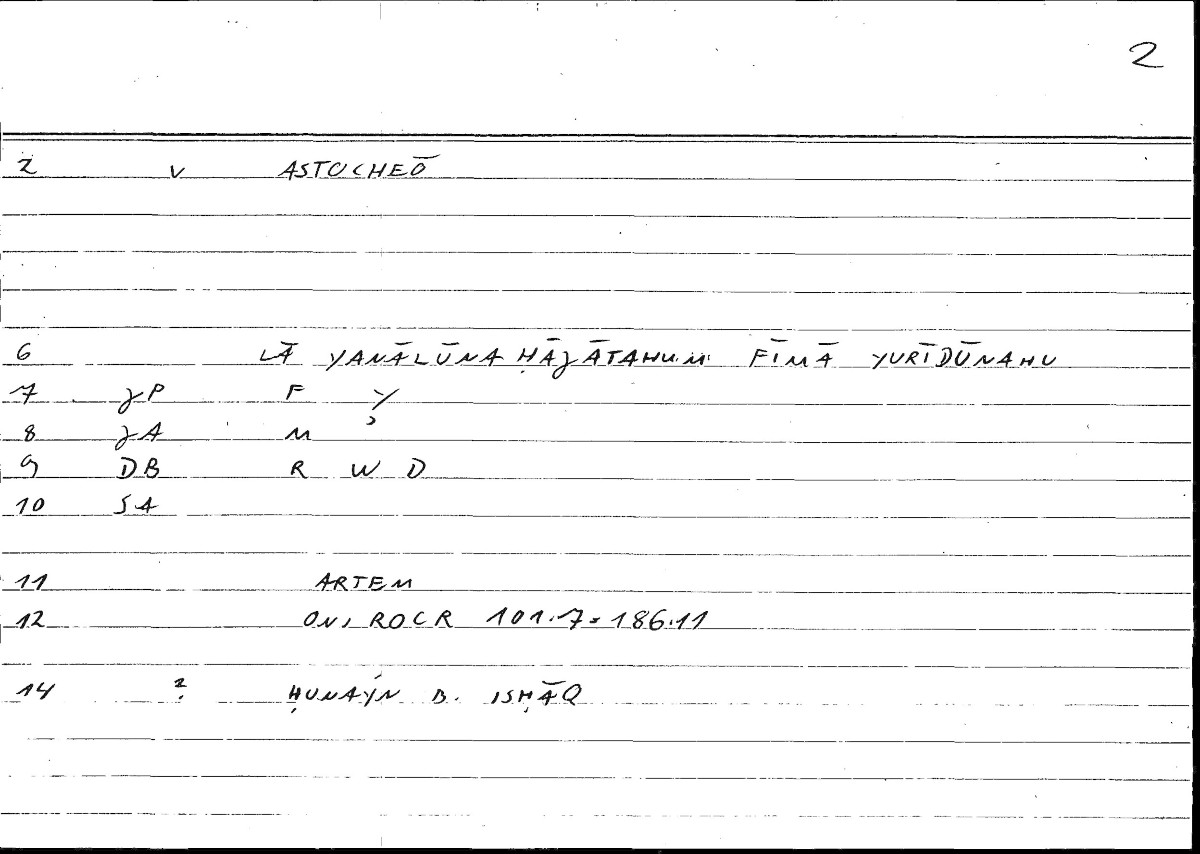 2
2 v ASTOCHEŌ
6 LĀ YANĀLŪNA ḤĀǧĀTAHUM FĪMĀ YURĪDŪNAHU
7 ǧP F Y
8 ǧA M
9 DB R W D
10 SA
11 ARTEM
12 ONIROCR 101.7 = 186.11
14 ? ḤUNAYN B. ISḤĀQ